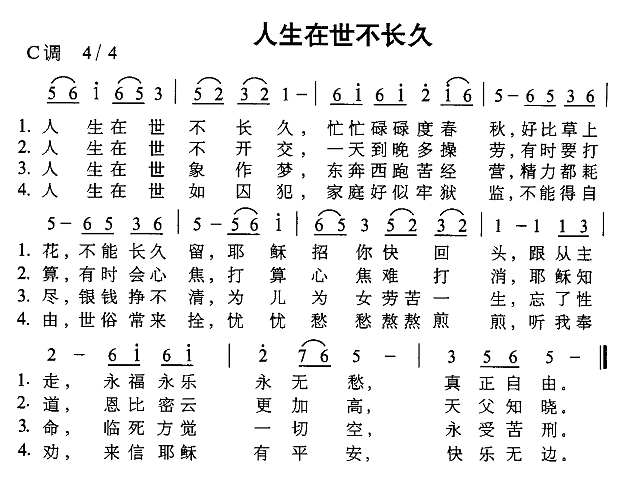 人生在世不长久
C调 4/4
5 6 i 6 5 3 | 5 2 3 2 1 - | 6 i 6 i 2 i 6 | 5 - 6 5 3 6 |
1. 人 生在 世 不 长 久, 忙忙碌碌度春 秋,好比草上
2. 人 生在 世 不 开 交, 一天到晚多操 劳,有时要打
3. 人 生在 世 象 作 梦, 东奔西跑苦经 营,精力都耗
4. 人 生在 世 如 囚 犯, 家庭好似牢狱 监,不能得自
5 - 6 5 3 6 | 5 - 5 6 i | 6 5 3 5 2 3 2 | 1 - 1 1 3 |
1. 花,不能 长久 留,耶 稣 招 你快 回 头,跟从主
2. 算,有时会心 焦,打 算 心 焦难 打 消,耶稣知
3. 尽,银钱挣不 清,为 儿 为 女劳苦一 生,忘了性
4. 由,世俗常来 拴,忧 忧 愁 愁熬熬煎 煎,听我奉
2 - 6 i 6 i | 2 7 6 5 - | 3 5 6 5 -
1. 走, 永福永乐 永无愁, 真正自由。
2. 道, 恩比密云 更加高, 天父知晓。
3. 命, 临死方觉 一切空, 永受苦刑。
4. 劝, 来信耶稣 有平安, 快乐无边。